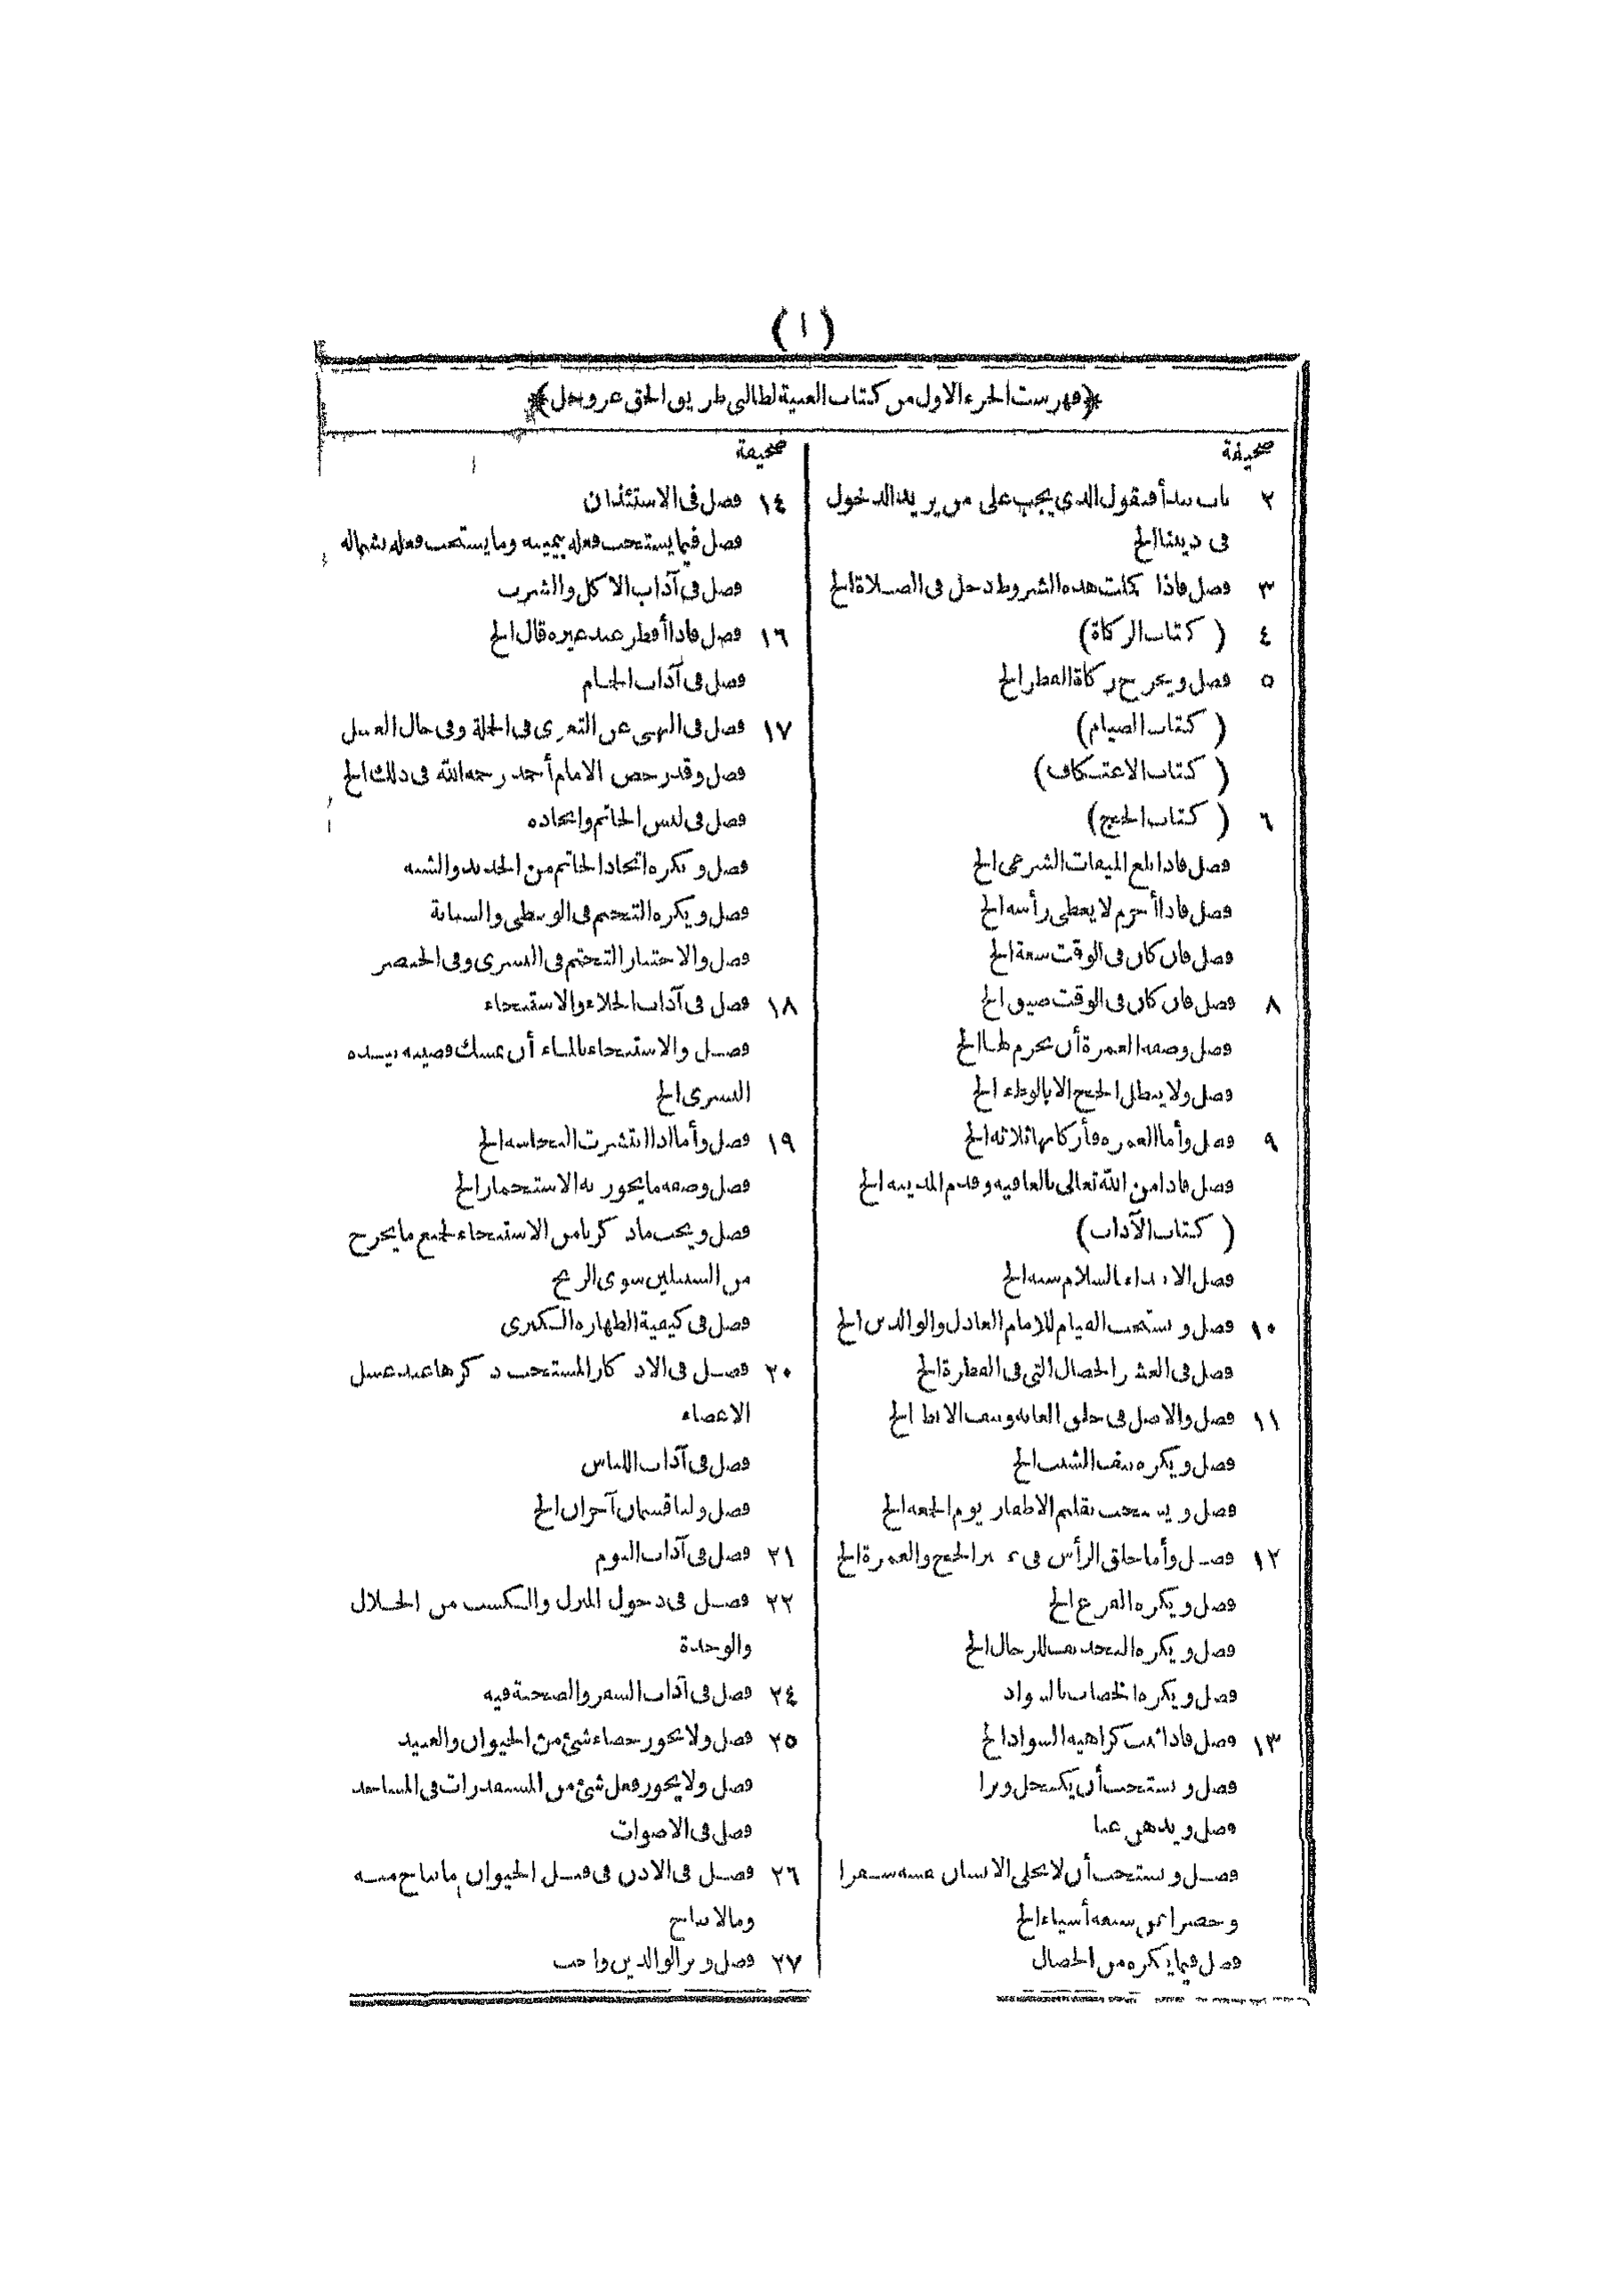 (١)
﴿فهرست الجزء الاول من كتاب الغنية لطالبي طريق الحق عز وجل﴾
صحيفة
٢ باب نبدأ فنقول الذي يجب على من يريد الدخول
فى ديننا الخ
٣ فصل فاذا كملت هذه الشروط دخل فى الصلاة الخ
٤ ( كتاب الزكاة)
٥ فصل ويخرج زكاة الفطر الخ
( كتاب الصيام)
( كتاب الاعتكاف)
٦ ( كتاب الحج)
فصل فاذا بلغ الميقات الشرعى الخ
فصل فاذا أحرم لا يغطى رأسه الخ
فصل فان كان فى الوقت سعة الخ
٨ فصل فان كان فى الوقت ضيق الخ
فصل وصفة العمرة أن يحرم لها الخ
فصل ولا يبطل الحج الا بالوطء الخ
٩ فصل وأما العمرة فأركانها ثلاثة الخ
فصل فاذا من الله تعالى بالعافية وقدم المدينة الخ
( كتاب الآداب)
فصل الابتداء بالسلام سنة الخ
١٠ فصل ويستحب القيام للامام العادل والوالدين الخ
فصل فى العشر الخصال التى فى الفطرة الخ
١١ فصل والاصل فى حلق العانة ونتف الابط الخ
فصل ويكره نتف الشيب الخ
فصل ويستحب تقليم الاظفار يوم الجمعة الخ
١٢ فصل وأما حلق الرأس فى غير الحج والعمرة الخ
فصل ويكره القزع الخ
فصل ويكره التحذيف للرجال الخ
فصل ويكره الخضاب بالسواد
١٣ فصل فاذا ثبت كراهية السواد الخ
فصل ويستحب أن يكتحل وترا
فصل ويدهن غبا
فصل ويستحب أن لا يخلى الانسان نفسه سفرا
وحضرا عن سبعة أشياء الخ
فصل فيما يكره من الخصال
صحيفة
١٤ فصل فى الاستئذان
فصل فيما يستحب فعله بيمينه وما يستحب فعله بشماله
فصل فى آداب الاكل والشرب
١٦ فصل فاذا أفطر عند غيره قال الخ
فصل فى آداب الحمام
١٧ فصل فى النهى عن التعرى فى الجلة وفى حال الغسل
فصل وقد رخص الامام أحمد رحمه الله فى ذلك الخ
فصل فى لبس الخاتم واتخاذه
فصل ويكره اتخاذ الخاتم من الحديد والشبه
فصل ويكره التختم فى الوسطى والسبابة
فصل والاختيار التختم فى اليسرى وفى الخنصر
١٨ فصل فى آداب الخلاء والاستنجاء
فصل والاستنجاء بالماء أن يمسك قضيبه بيده
اليسرى الخ
١٩ فصل وأما اذا انتشرت النجاسة الخ
فصل وصفة ما يجوز به الاستجمار الخ
فصل ويجب ماذكرنا من الاستنجاء لجميع ما يخرج
من السبيلين سوى الريح
فصل فى كيفية الطهارة الكبرى
٢٠ فصل فى الاذكار المستحب ذكرها عند غسل
الاعضاء
فصل فى آداب اللباس
فصل ولنا قسمان آخران الخ
٢١ فصل فى آداب النوم
٢٢ فصل فى دخول المنزل والكسب من الحلال
والوحدة
٢٤ فصل فى آداب السفر والصحبة فيه
٢٥ فصل ولا يجوز خصاء شئ من الحيوان والعبيد
فصل ولا يجوز فعل شئ من المستقذرات فى المساجد
فصل فى الاصوات
٢٦ فصل فى الاذن فى قتل الحيوان ما يباح منه
وما لا يباح
٢٧ فصل وبر الوالدين واجب